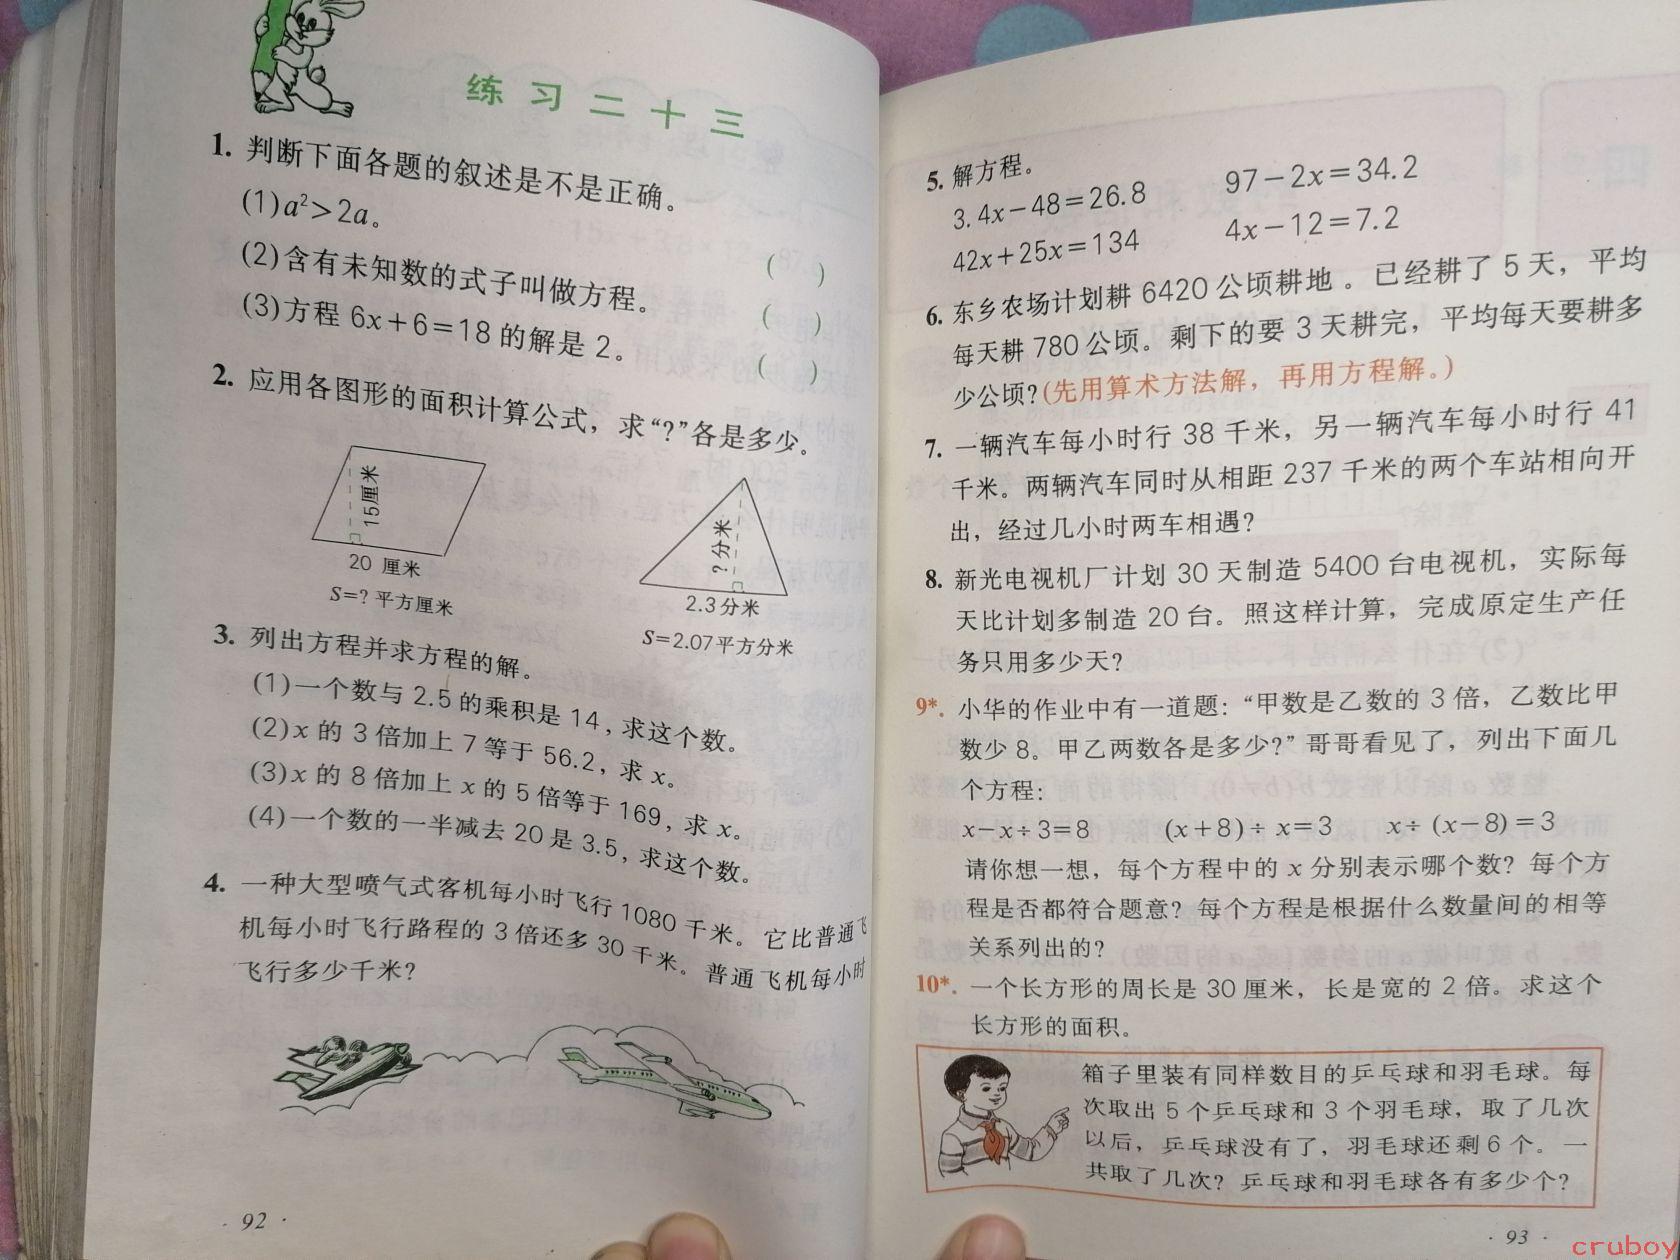 练习二十三
1. 判断下面各题的叙述是不是正确。
(1)a²>2a。
( )
(2)含有未知数的式子叫做方程。
( )
(3)方程 6x+6=18 的解是 2。
( )
2. 应用各图形的面积计算公式，求“?”各是多少。
15厘米
20 厘米
S=? 平方厘米
?分米
2.3分米
S=2.07平方分米
3. 列出方程并求方程的解。
(1)一个数与 2.5 的乘积是 14，求这个数。
(2)x 的 3 倍加上 7 等于 56.2，求 x。
(3)x 的 8 倍加上 x 的 5 倍等于 169，求 x。
(4)一个数的一半减去 20 是 3.5，求这个数。
4. 一种大型喷气式客机每小时飞行 1080 千米。它比普通飞
机每小时飞行路程的 3 倍还多 30 千米。普通飞机每小时
飞行多少千米?
· 92 ·
5. 解方程。
3.4x－48＝26.8 97－2x＝34.2
42x＋25x＝134 4x－12＝7.2
6. 东乡农场计划耕 6420 公顷耕地。已经耕了 5 天，平均
每天耕 780 公顷。剩下的要 3 天耕完，平均每天要耕多
少公顷?(先用算术方法解，再用方程解。)
7. 一辆汽车每小时行 38 千米，另一辆汽车每小时行 41
千米。两辆汽车同时从相距 237 千米的两个车站相向开
出，经过几小时两车相遇?
8. 新光电视机厂计划 30 天制造 5400 台电视机，实际每
天比计划多制造 20 台。照这样计算，完成原定生产任
务只用多少天?
9*. 小华的作业中有一道题：“甲数是乙数的 3 倍，乙数比甲
数少 8。甲乙两数各是多少?”哥哥看见了，列出下面几
个方程：
x－x÷3＝8 (x＋8)÷ x＝3 x÷ (x－8)＝3
请你想一想，每个方程中的 x 分别表示哪个数? 每个方
程是否都符合题意? 每个方程是根据什么数量间的相等
关系列出的?
10*. 一个长方形的周长是 30 厘米，长是宽的 2 倍。求这个
长方形的面积。
箱子里装有同样数目的乒乓球和羽毛球。每
次取出 5 个乒乓球和 3 个羽毛球，取了几次
以后，乒乓球没有了，羽毛球还剩 6 个。一
共取了几次? 乒乓球和羽毛球各有多少个?
· 93 ·
cruboy